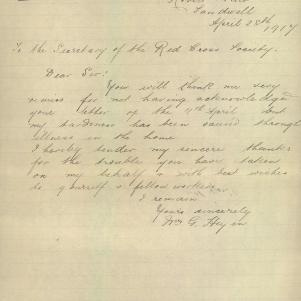 Sandwell
April 28th 1917
To the Secretary of the Red Cross Society.
Dear Sir:
You will think me very
remiss for not having acknowledged
your letter of the 4th April but
my tardiness has been caused through
illness in the home
I hereby tender my sincere thanks
for the trouble you have taken
on my behalf & with best wishes
to yourself & fellow workers
I remain
Yours sincerely
Mrs G. Heyen